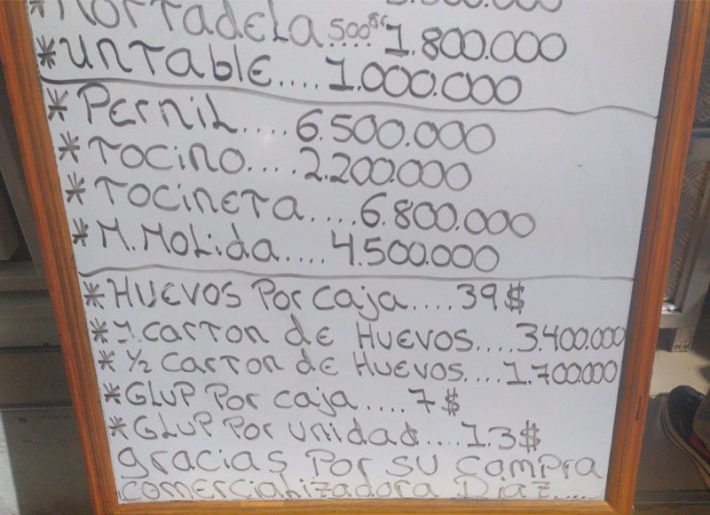 *MORTADELA 500gr 1.800.000
*UNTABLE.... 1.000.000
*PERNIL.... 6.500.000
*TOCINO.... 2.200.000
*TOCINETA.... 6.800.000
*M.MOLIDA.... 4.500.000
*HUEVOS POR CAJA.... 39$
*1 CARTON DE HUEVOS.... 3.400.000
*½ CARTON DE HUEVOS.... 1.700.000
*GLUP POR CAJA.... 7$
*GLUP POR UNIDAD.... 1.3$
gracias POR SU COMPRA
COMERCIALIZADORA DIAZ.....